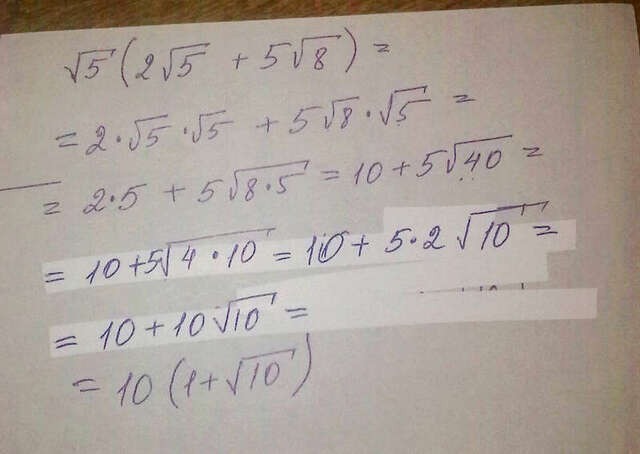 √5 (2√5 + 5√8) =
= 2·√5·√5 + 5√8·√5 =
= 2·5 + 5√8·5 = 10 + 5√40 =
= 10+5√4·10 = 10 + 5·2√10 =
= 10 + 10√10 =
= 10 (1+√10)